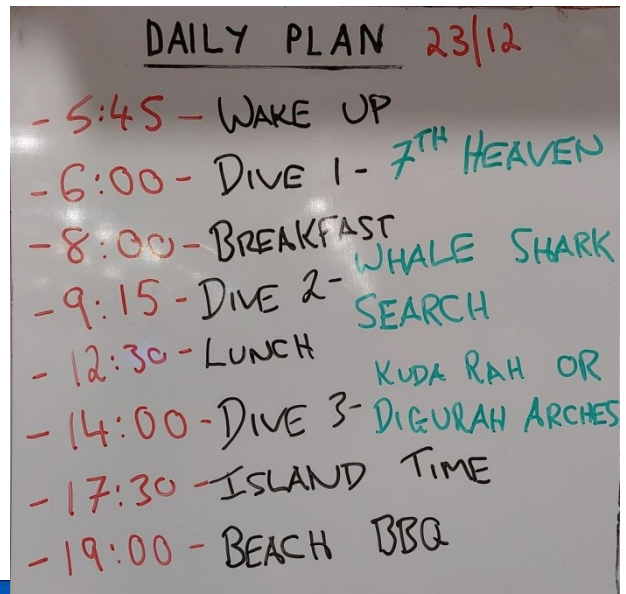 DAILY PLAN 23/12
- 5:45 - WAKE UP
- 6:00 - DIVE 1 - 7TH HEAVEN
- 8:00 - BREAKFAST
- 9:15 - DIVE 2 - WHALE SHARK SEARCH
- 12:30 - LUNCH
- 14:00 - DIVE 3 - KUDA RAH OR DIGURAH ARCHES
- 17:30 - ISLAND TIME
- 19:00 - BEACH BBQ